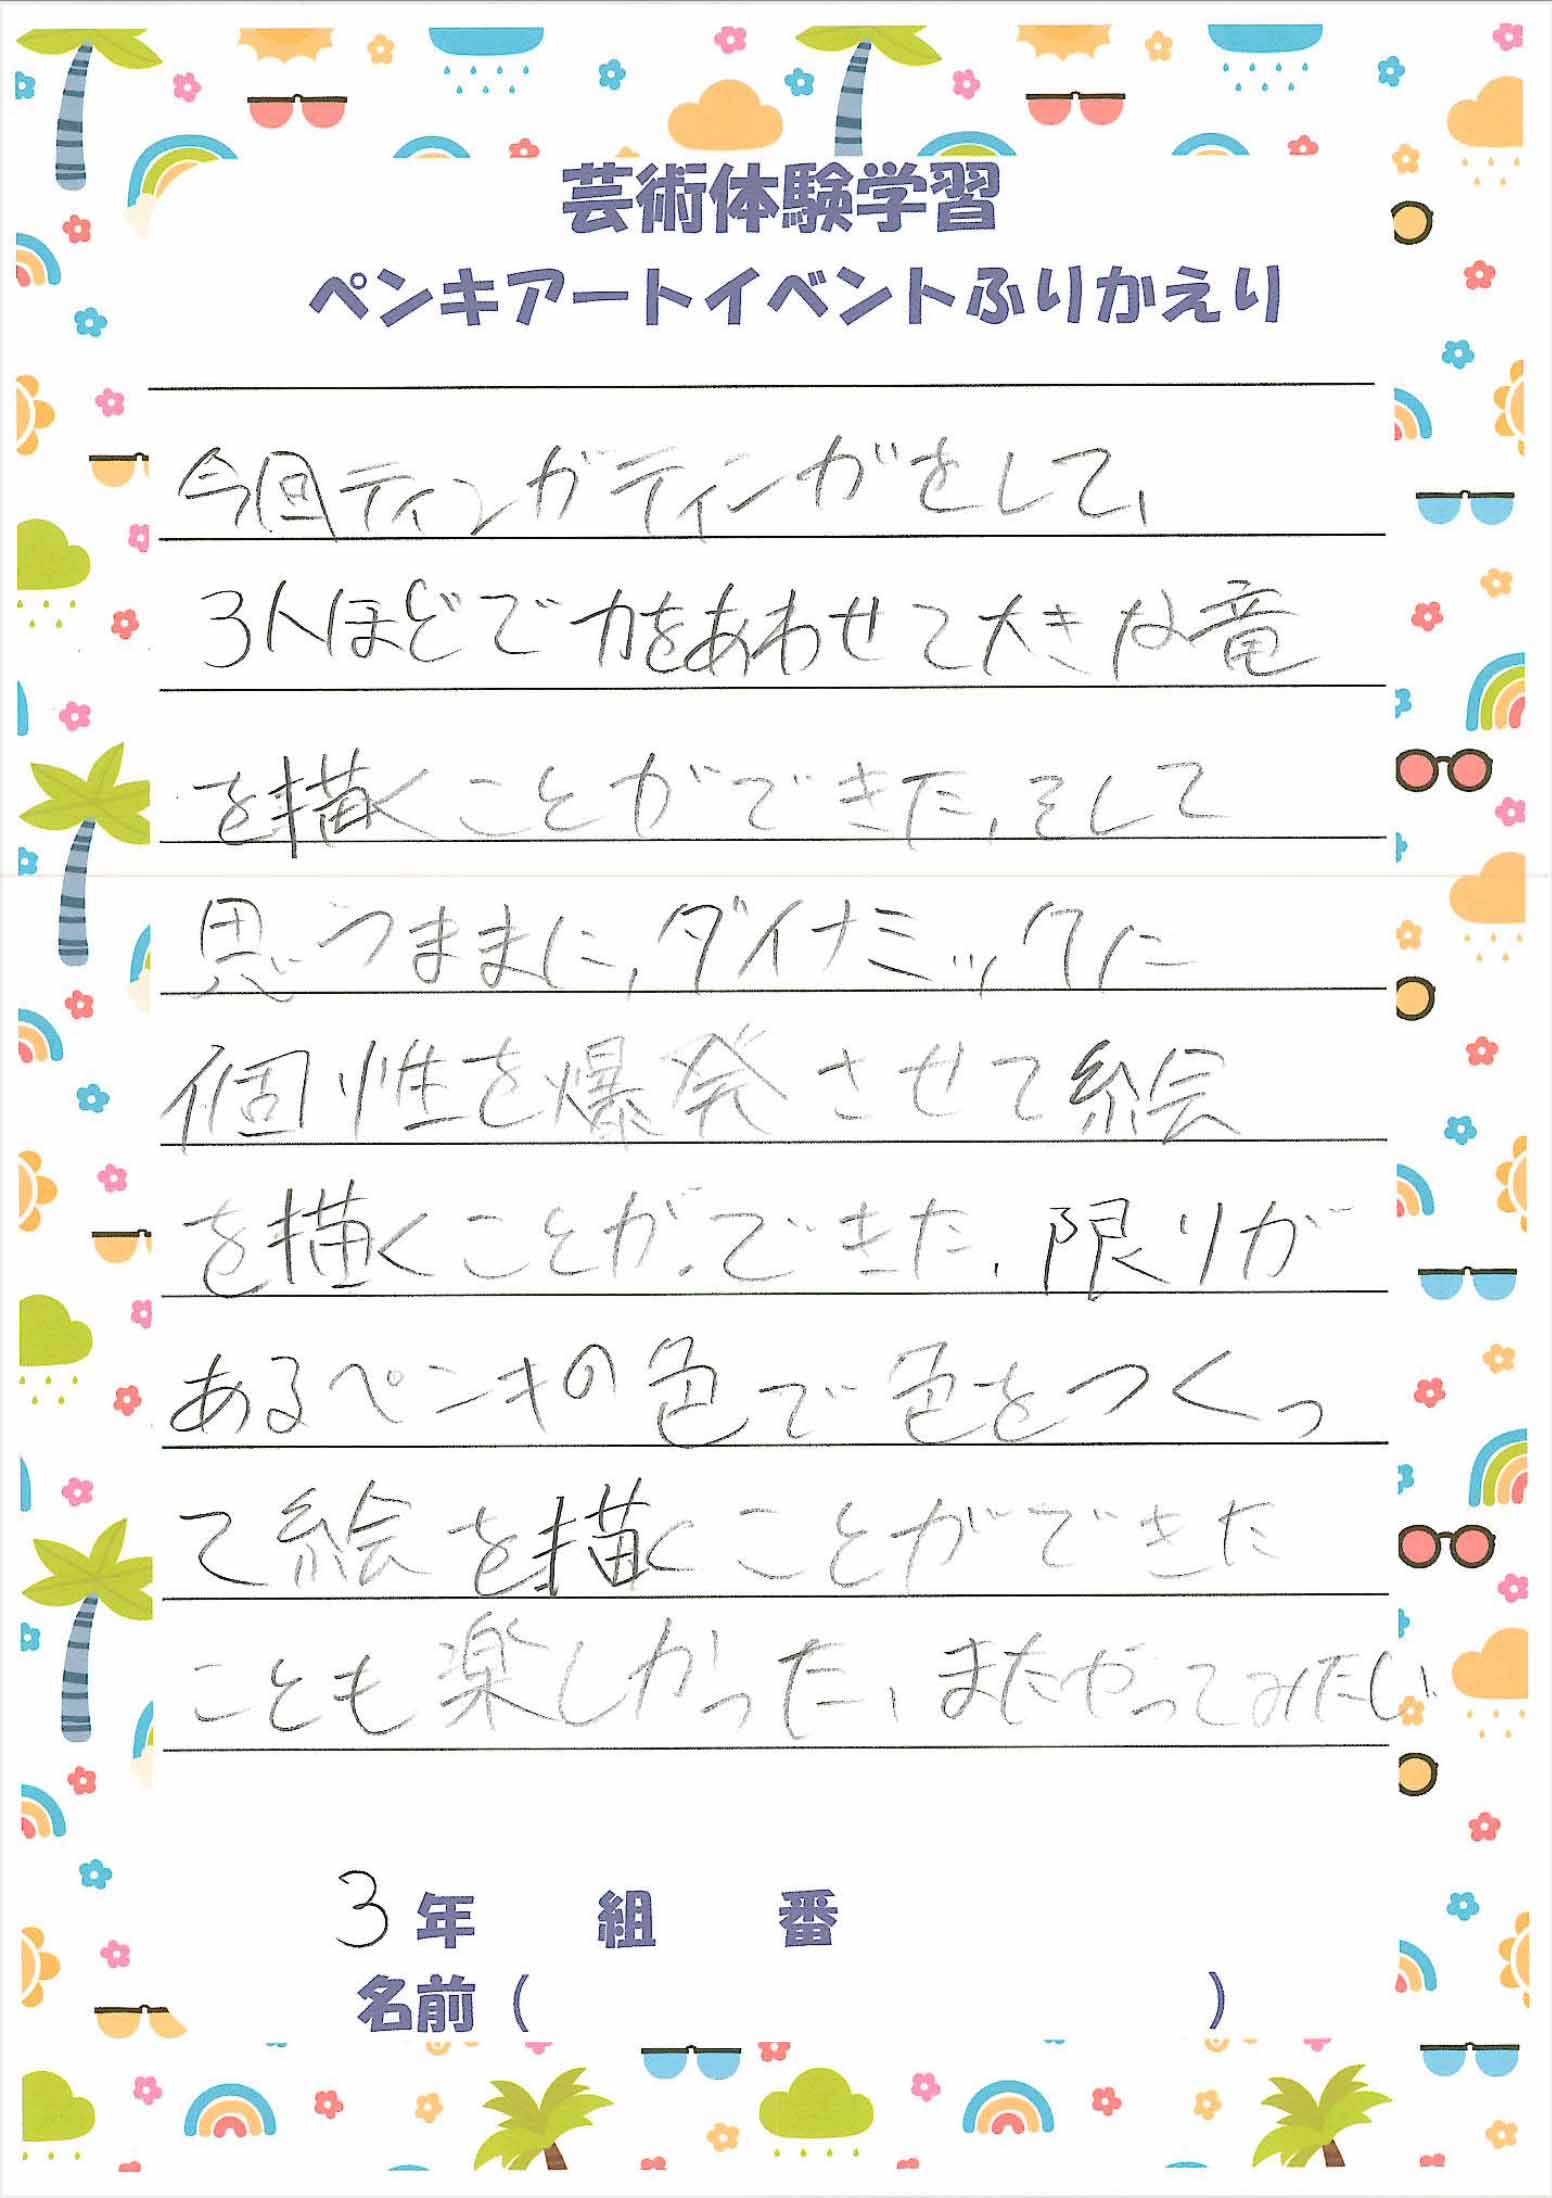 芸術体験学習
ペンキアートイベントふりかえり
今回ティンガティンガをして、
3人ほどで力をあわせて大きな竜
を描くことができた、そして
思うままに、ダイナミックに
個性を爆発させて絵
を描くことができた、限りが
あるペンキの色で色をつくっ
て絵を描くことができた
ことも楽しかった、またやってみたい
3年 組 番
名前( )